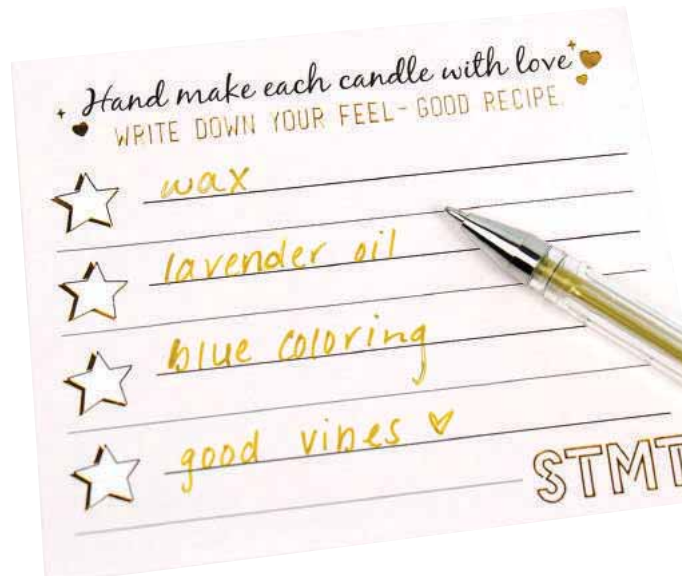 Hand make each candle with love
WRITE DOWN YOUR FEEL-GOOD RECIPE.
wax
lavender oil
blue coloring
good vibes
STMT